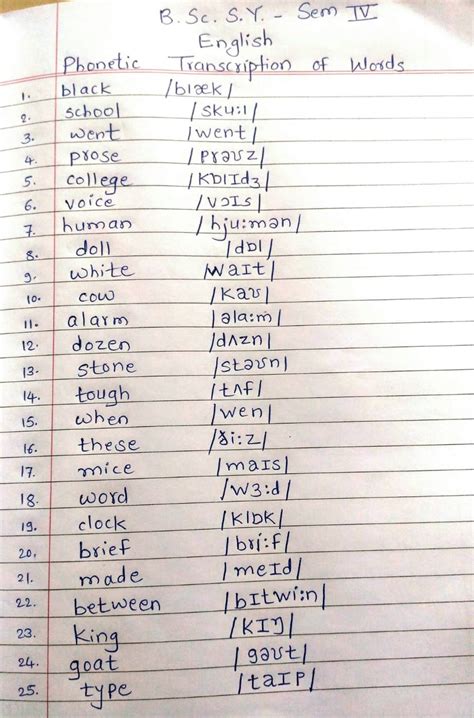 B.Sc. S.Y. - Sem IV
English
Phonetic Transcription of Words
1. black /blæk/
2. school /sku:l/
3. went /went/
4. prose /prəʊz/
5. college /kɒlɪdʒ/
6. voice /vɔɪs/
7. human /hju:mən/
8. doll /dɒl/
9. white /waɪt/
10. cow /kaʊ/
11. alarm /əla:m/
12. dozen /dʌzn/
13. stone /stəʊn/
14. tough /tʌf/
15. when /wen/
16. these /ði:z/
17. mice /maɪs/
18. word /wɜ:d/
19. clock /klɒk/
20. brief /bri:f/
21. made /meɪd/
22. between /bɪtwi:n/
23. king /kɪŋ/
24. goat /gəʊt/
25. type /taɪp/